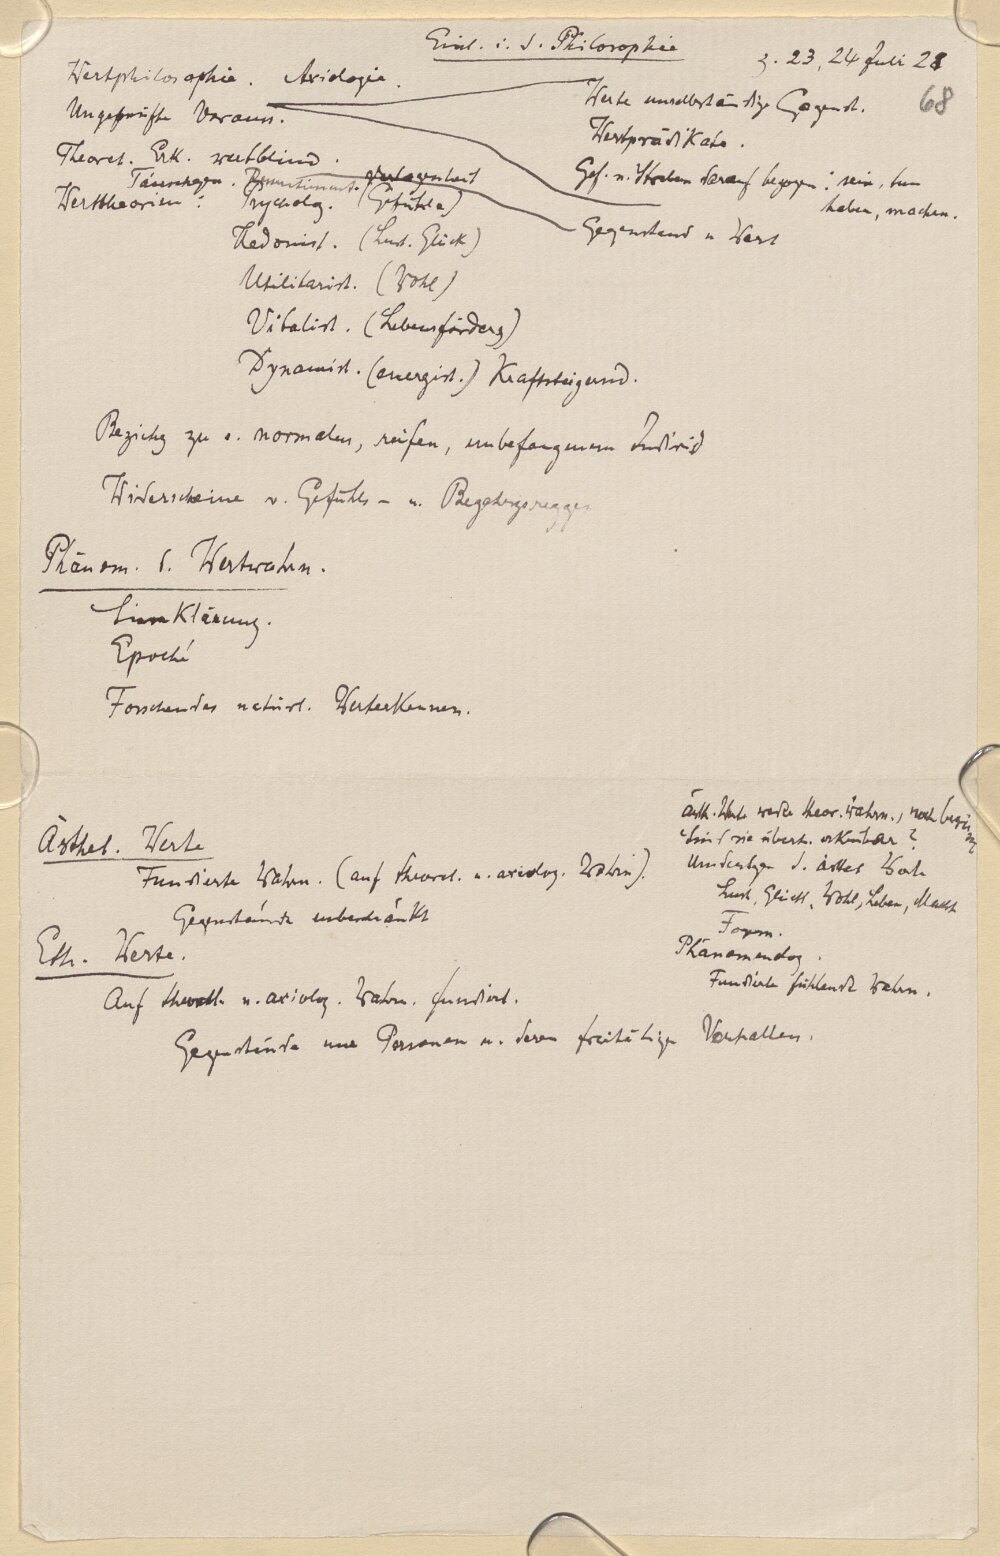 Einl. i. d. Philosophie
z. 23, 24 Juli 28
68
Wertphilosophie. Axiologie.
Ungeprüfte Voraus.
Theoret. Erk. wertblind.
Täuschgen. Ressentiment. Verlogenheit
Werttheorien: Psycholog. (Gefühle)
Hedonist. (Lust. Glück)
Utilitarist. (Wohl)
Vitalist. (Lebensförderg)
Dynamist. (energist.) Kraftsteigernd.
Werte unselbständige Gegenst.
Wertprädikate.
Gef. u. Streben darauf bezogen: sein, tun
haben, machen.
Gegenstand u Wert
Beziehg zu e. normalen, reifen, unbefangenen Individ
Widerscheine v. Gefühls- u.
Phänom. d. Wertwahrn.
Sinnklärung.
Epoché
Forschendes natürl. Werterkennen.
Ästhet. Werte
Fundierte Wahrn. (auf theoret. u. axiolog. Wahrn).
Gegenstände unbeschränkt
Eth. Werte.
Auf theoret. u. axiolog. Wahrn. fundiert.
Gegenstände nur Personen u. deren freitätige Verhalten.
ästh. Werte weder theor. Wahrn., noch
Sind sie überh. erkennbar?
Umdeutgen d. ästhet Werte
Lust, Glück, Wohl, Leben, Macht
Form.
Phänomenolog.
Fundierte fühlende Wahrn.